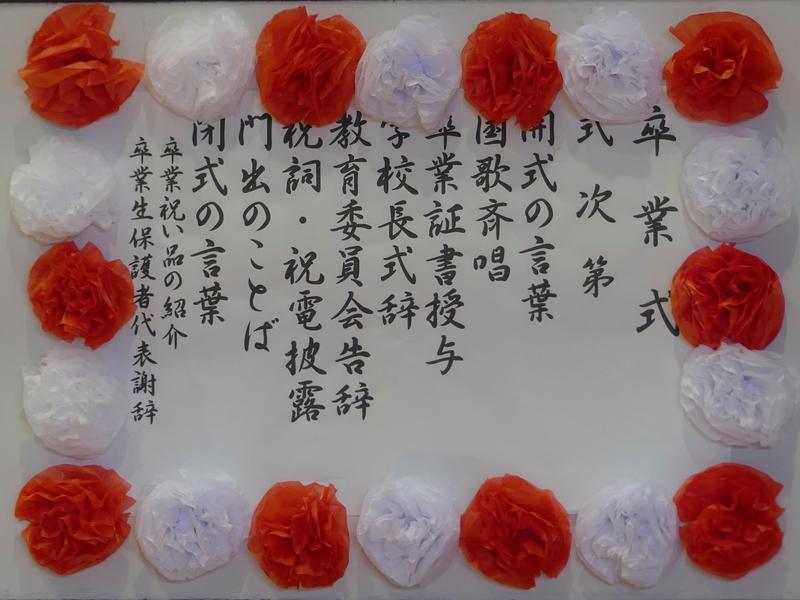 卒業式
式次第
開式の言葉
国歌斉唱
卒業証書授与
学校長式辞
教育委員会告辞
祝詞・祝電披露
門出のことば
閉式の言葉
卒業祝い品の紹介
卒業生保護者代表謝辞